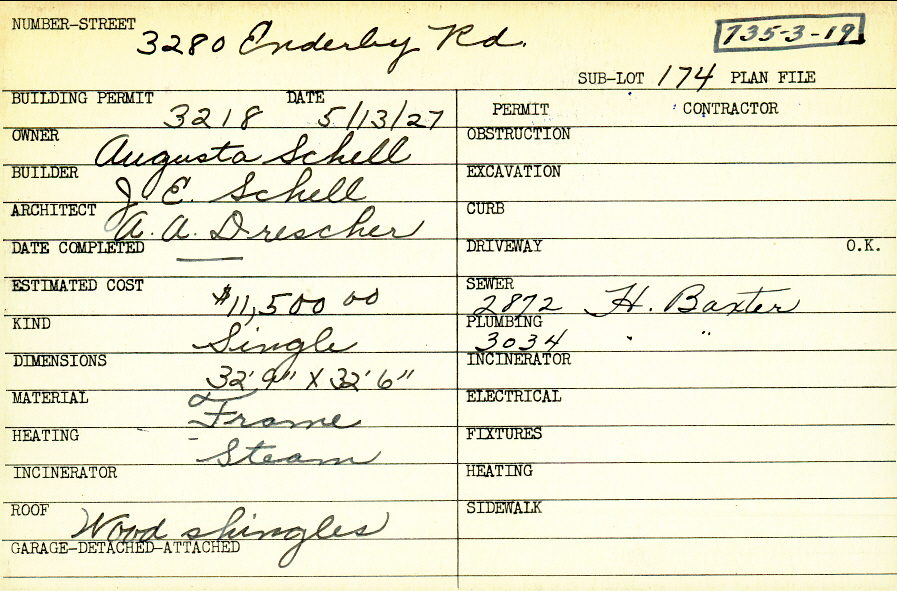 NUMBER-STREET
3280 Enderby Rd.
735-3-19
SUB-LOT 174 PLAN FILE
BUILDING PERMIT DATE
3218 5/13/27
PERMIT CONTRACTOR
OWNER
Augusta Schell
OBSTRUCTION
BUILDER
J. E. Schell
EXCAVATION
ARCHITECT
A. A. Drescher
CURB
DATE COMPLETED
—
DRIVEWAY O.K.
ESTIMATED COST
$11,500 00
SEWER
2872 H. Baxter
KIND
Single
PLUMBING
3034 " "
DIMENSIONS
32' 9" X 32' 6"
INCINERATOR
MATERIAL
Frame
ELECTRICAL
HEATING
Steam
FIXTURES
INCINERATOR
HEATING
ROOF
Wood shingles
SIDEWALK
GARAGE-DETACHED-ATTACHED